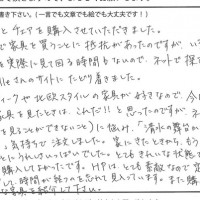 書き下さい。（一言でも文章でも絵でも大丈夫です！）
とチェアを購入させていただきました。
で家具を買うことに抵抗があったのですが、い
を実際に見て回る時間もないので、ネットで探
leさんのサイトにたどり着きました。
ィークや北欧スタイルの家具が好きなので、今
家具を見たときは、これだ!! と思ったのですが、ネ
を見ることができない）に悩み、「清水の舞台か
気持ちで注文しました。家にきたときから、もう
とにうれしいっぱいでした。とてもきれいな状態で
購入してよかったです。HPは、とても素敵なので定
して時間が経つのも忘れて見入っています。また購
な家具を紹介して下さい。